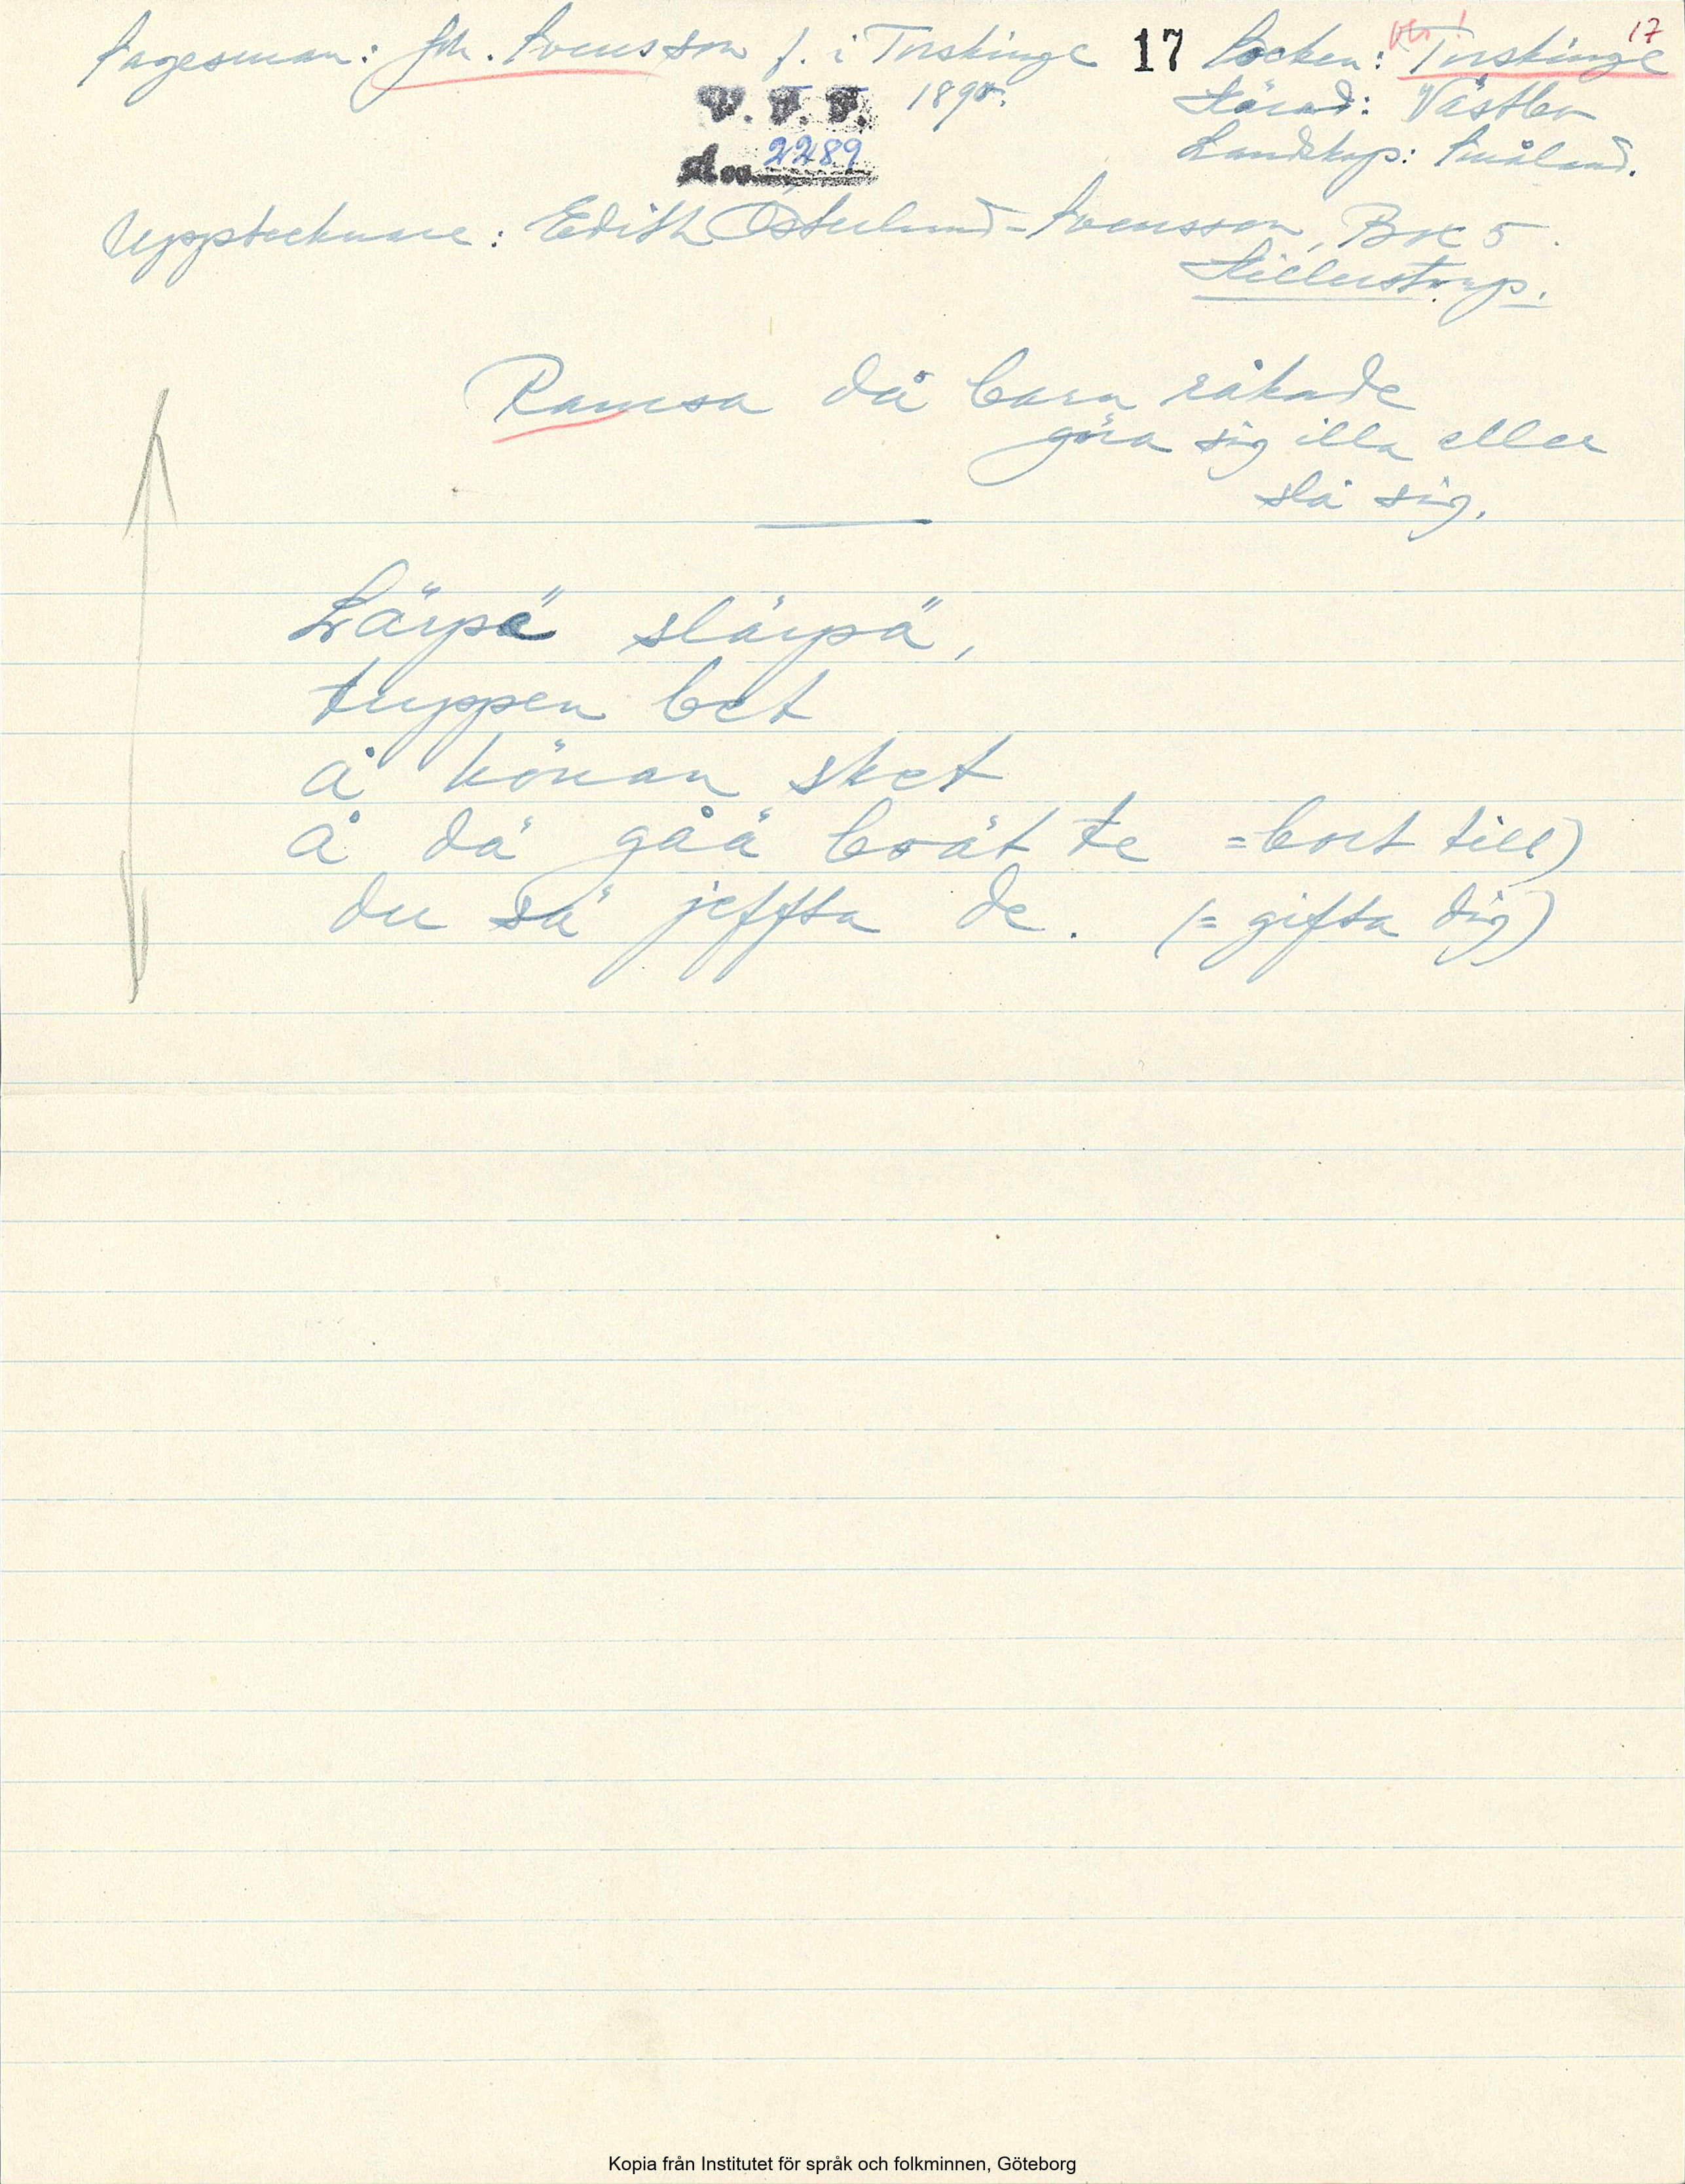 Sagesman: Joh. Svensson f. i Torskinge 17 Socken: Torskinge 17
V. F. F. 1890. Härad: Västbo
2289 Landskap: Småland.
Upptecknare: Edith Österlund-Svensson, Box 5.
Hillerstorp.
Ramsa då barn råkade
göra sig illa eller
slå sig.
Lärpä slärpä,
tuppen bet
å hönan sket
å dä gåä boät te =bort till)
du sä jeffta de. (= gifta dig)
Kopia från Institutet för språk och folkminnen, Göteborg